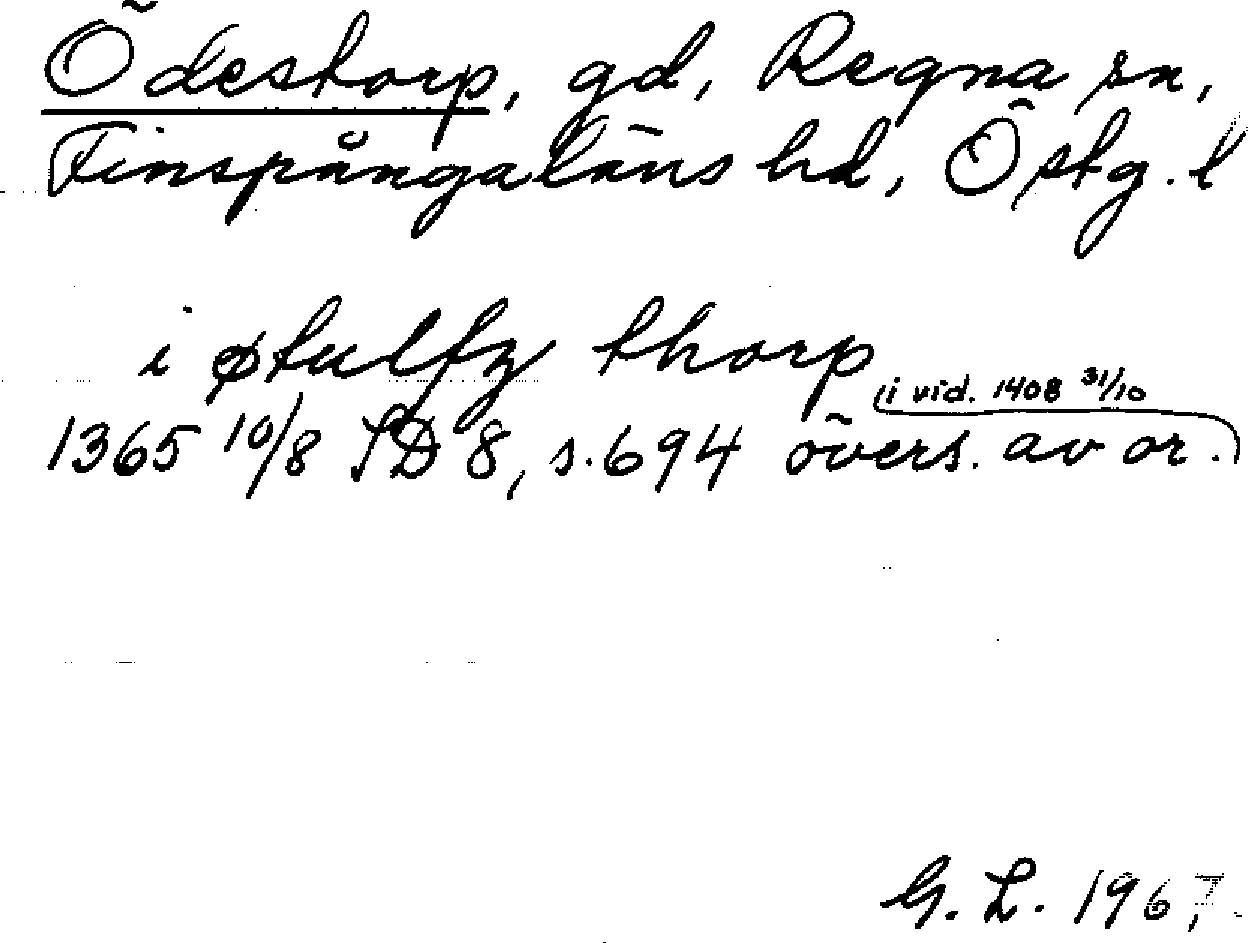 Ödestorp, gd, Regna sn,
Finspångaläns hd, Östg. l
i øtulfz thorp
(i vid. 1408 31/10
1365 10/8 SD 8, s. 694 övers. av or.)
G. L. 1967.